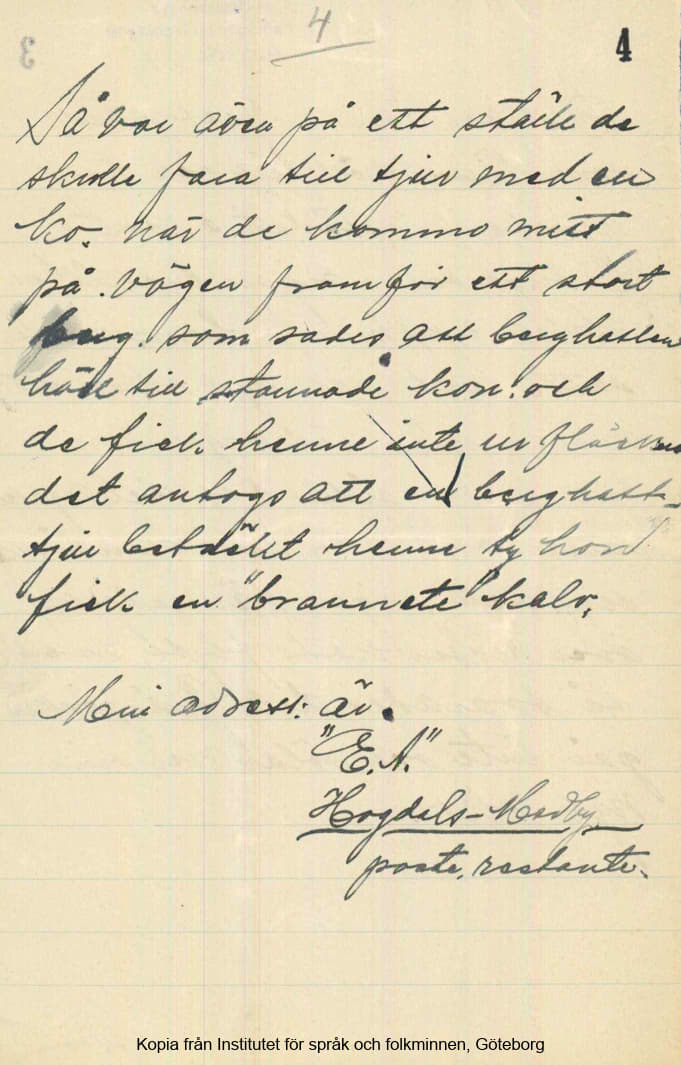 4
4
3
Så var även på ett ställe de
skulle fara till tjur med en
ko. när de kommo mitt
på vägen framför ett stort
berg. som sades att berghatten
höll till stannade kon. och
de fick henne inte ur fläcken
det antogs att en berghatt-
tjur betäckt henne ty hon
fick en "brannete" kalv.
Min adress: är.
"E.A."
Hogdals-Medby
poste. restante.
Kopia från Institutet för språk och folkminnen, Göteborg